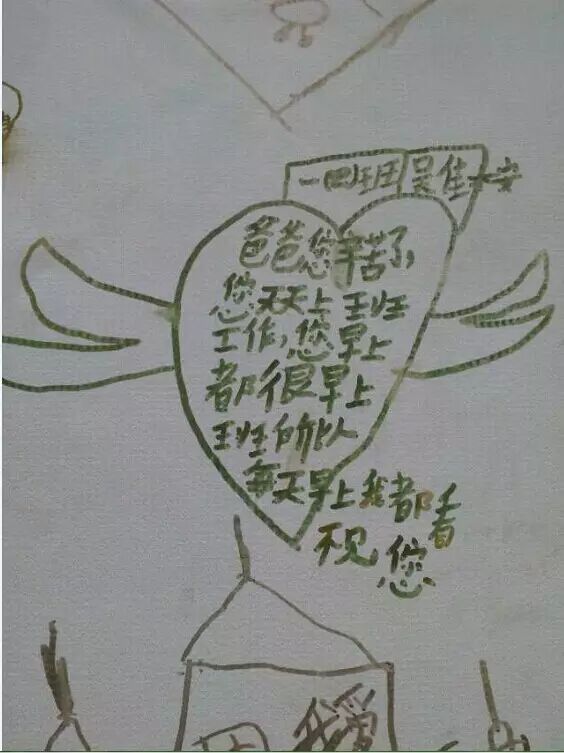 一四班 吴佳安
爸爸您辛苦了,
您天天上班
工作,您早上
都很早上
班所以
每天早上我都看
不见您
我爱